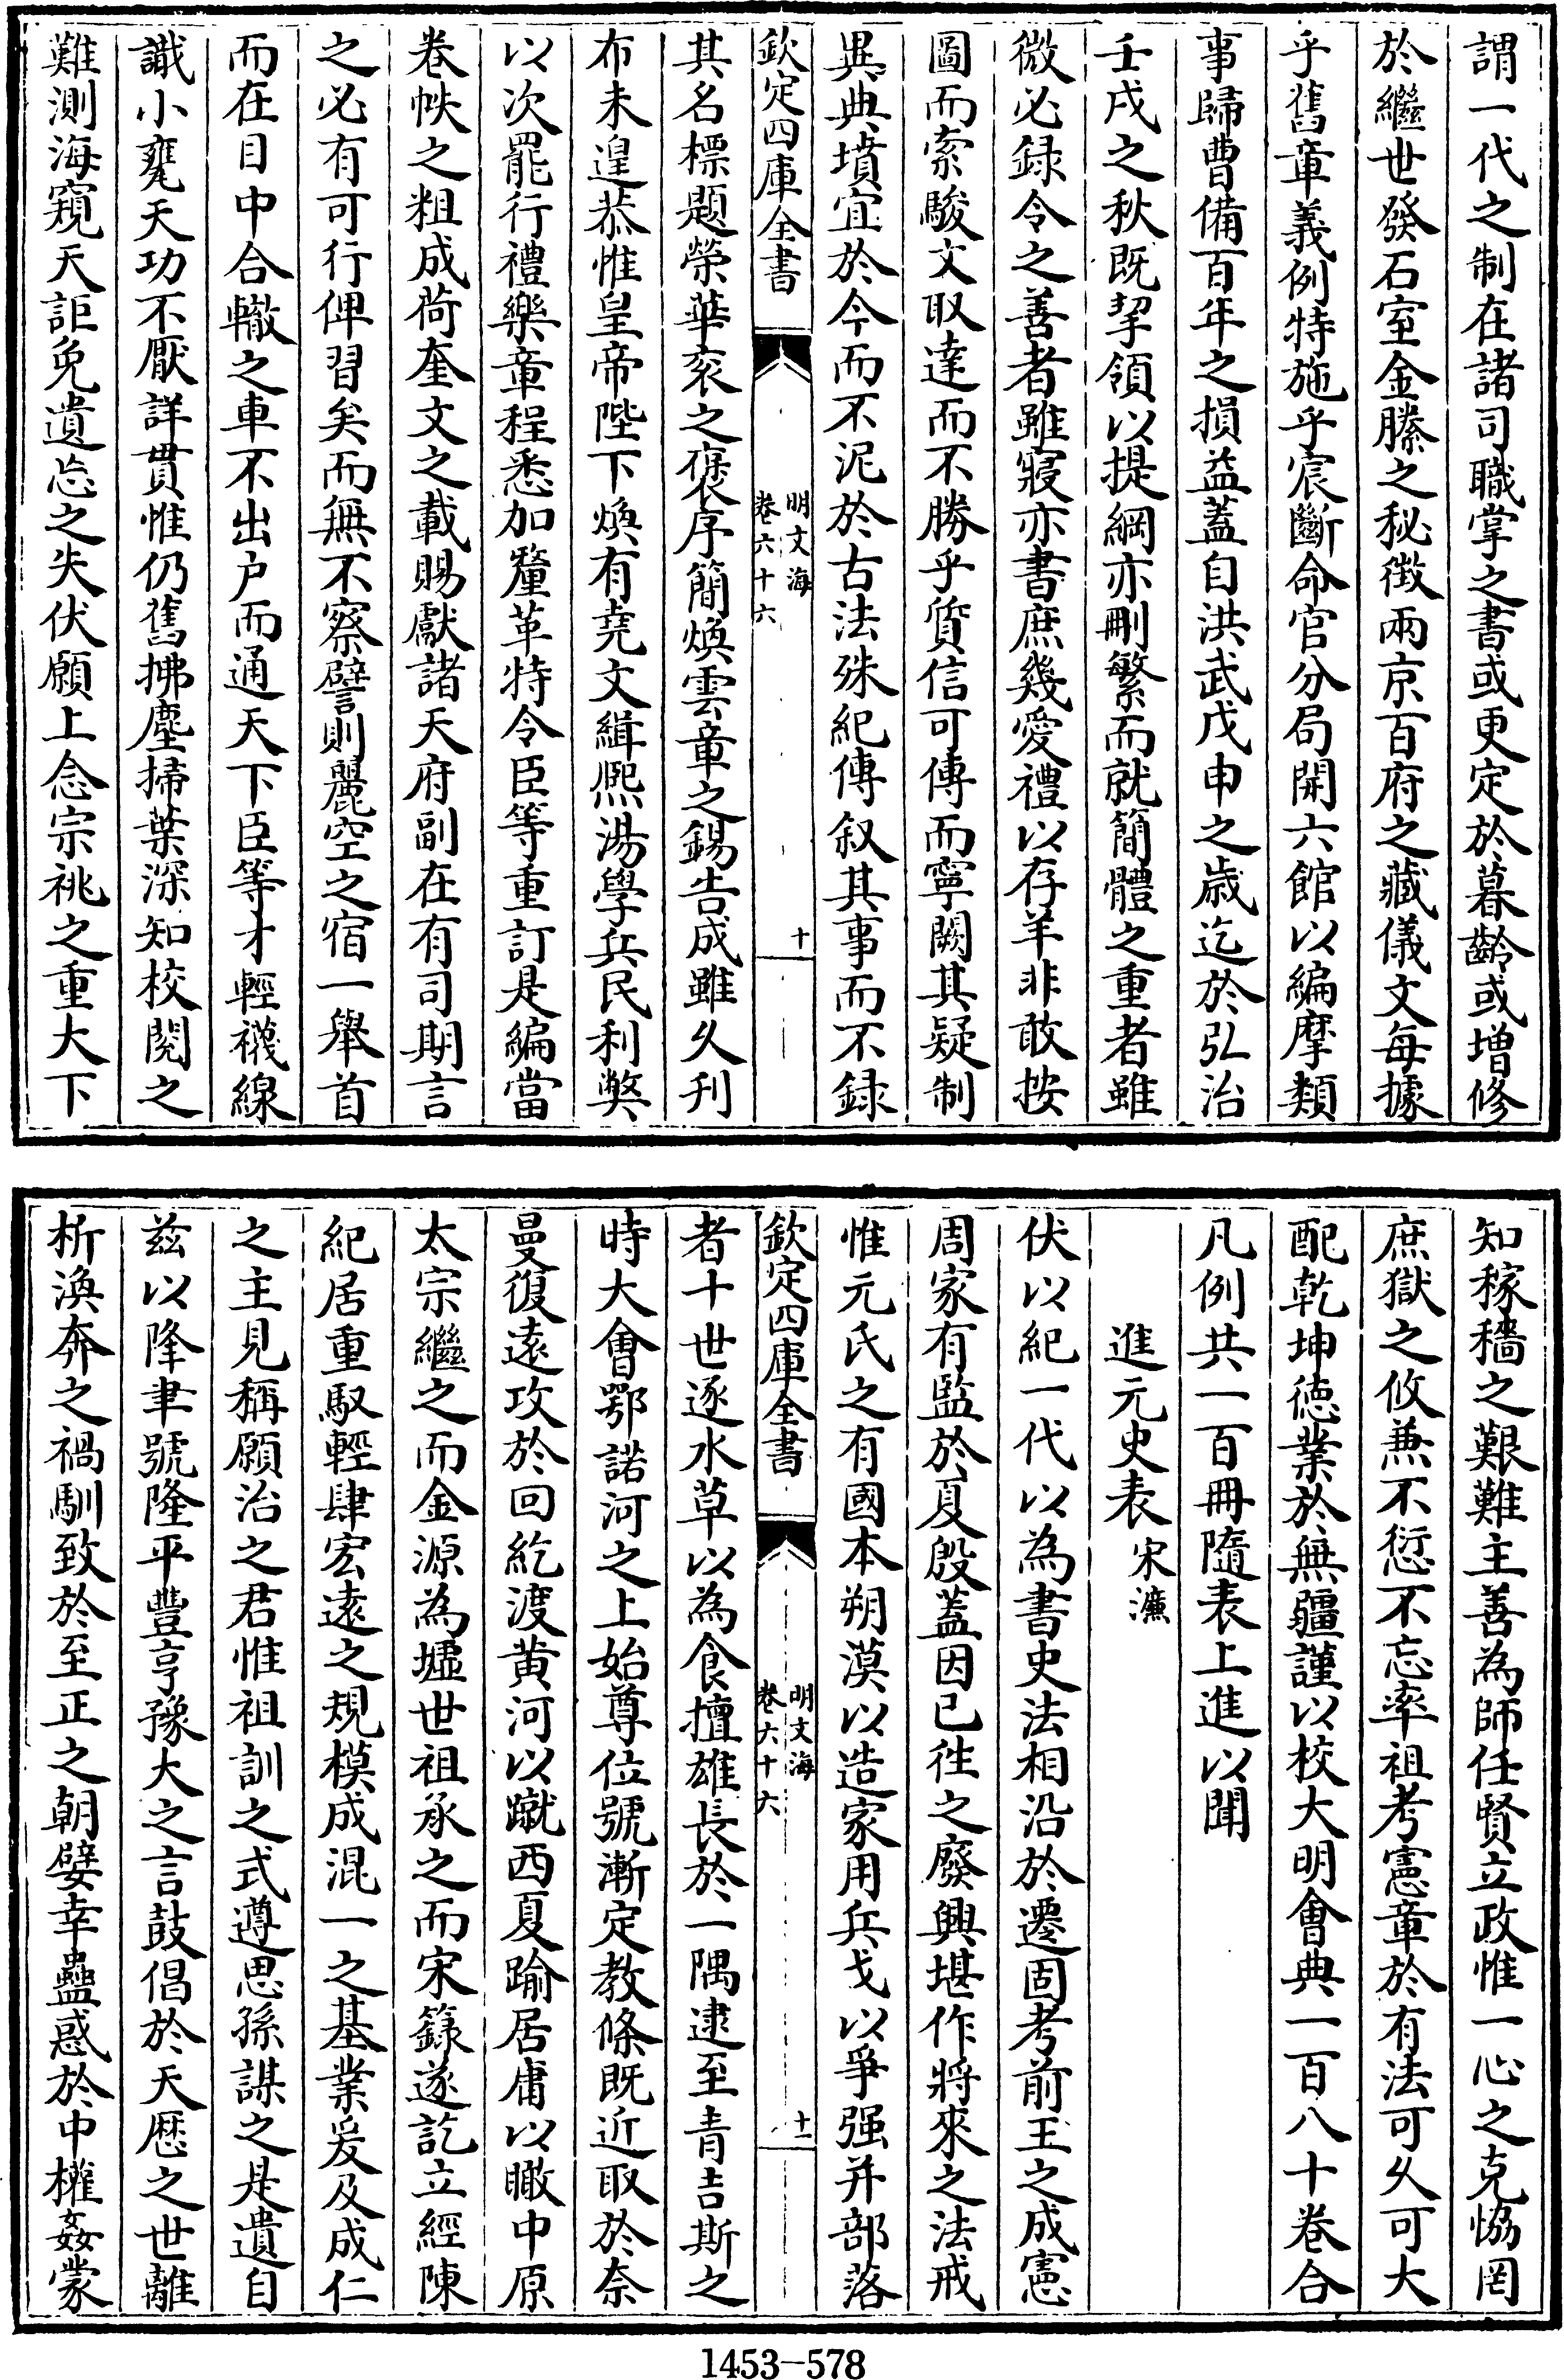 謂一代之制在諸司職掌之書或更定於暮齡或增修
於繼世發石室金縢之秘徴兩京百府之藏儀文每據
乎舊章義例特施乎宸斷命官分局開六館以編摩類
事歸曹備百年之損益蓋自洪武戊申之歳迄於弘治
壬戌之秋既挈領以提綱亦刪繁而就簡體之重者雖
微必録令之善者雖寢亦書庶幾愛禮以存羊非敢按
圖而索駿文取達而不勝乎質信可傳而寧闕其疑制
異典墳宜於今而不泥於古法殊紀傳叙其事而不録
欽定四庫全書
明文海
卷六十六
十
其名標題榮華衮之褒序簡煥雲章之錫告成雖久刋
布未遑恭惟皇帝陛下煥有堯文緝熈湯學兵民利弊
以次罷行禮樂章程悉加釐革特令臣等重訂是編當
卷帙之粗成荷奎文之載賜獻諸天府副在有司期言
之必有可行俾習矣而無不察譬則麗空之宿一舉首
而在目中合轍之車不出户而通天下臣等才輕襪線
識小甕天功不厭詳貫惟仍舊拂塵掃葉深知校閱之
難測海窺天詎免遺忘之失伏願上念宗祧之重大下
知稼穡之艱難主善為師任賢立政惟一心之克恊罔
庶獄之攸兼不愆不忘率祖考憲章於有法可久可大
配乾坤徳業於無疆謹以校大明會典一百八十卷合
凡例共一百冊隨表上進以聞
進元史表 宋濂
伏以紀一代以為書史法相沿於遷固考前王之成憲
周家有監於夏殷蓋因已徃之廢興堪作將來之法戒
惟元氏之有國本朔漠以造家用兵戈以爭强并部落
欽定四庫全書
明文海
卷六十六
十一
者十世逐水草以為食擅雄長於一隅逮至青吉斯之
時大會鄂諾河之上始尊位號漸定教條既近取於奈
曼復遠攻於回紇渡黄河以蹴西夏踰居庸以瞰中原
太宗繼之而金源為墟世祖承之而宋籙遂訖立經陳
紀居重馭輕肆宏遠之規模成混一之基業爰及成仁
之主見稱願治之君惟祖訓之式遵思孫謀之是遺自
兹以降聿號隆平豐亨豫大之言鼓倡於天厯之世離
析渙奔之禍馴致於至正之朝嬖幸蠱惑於中權姦蒙
1453—578